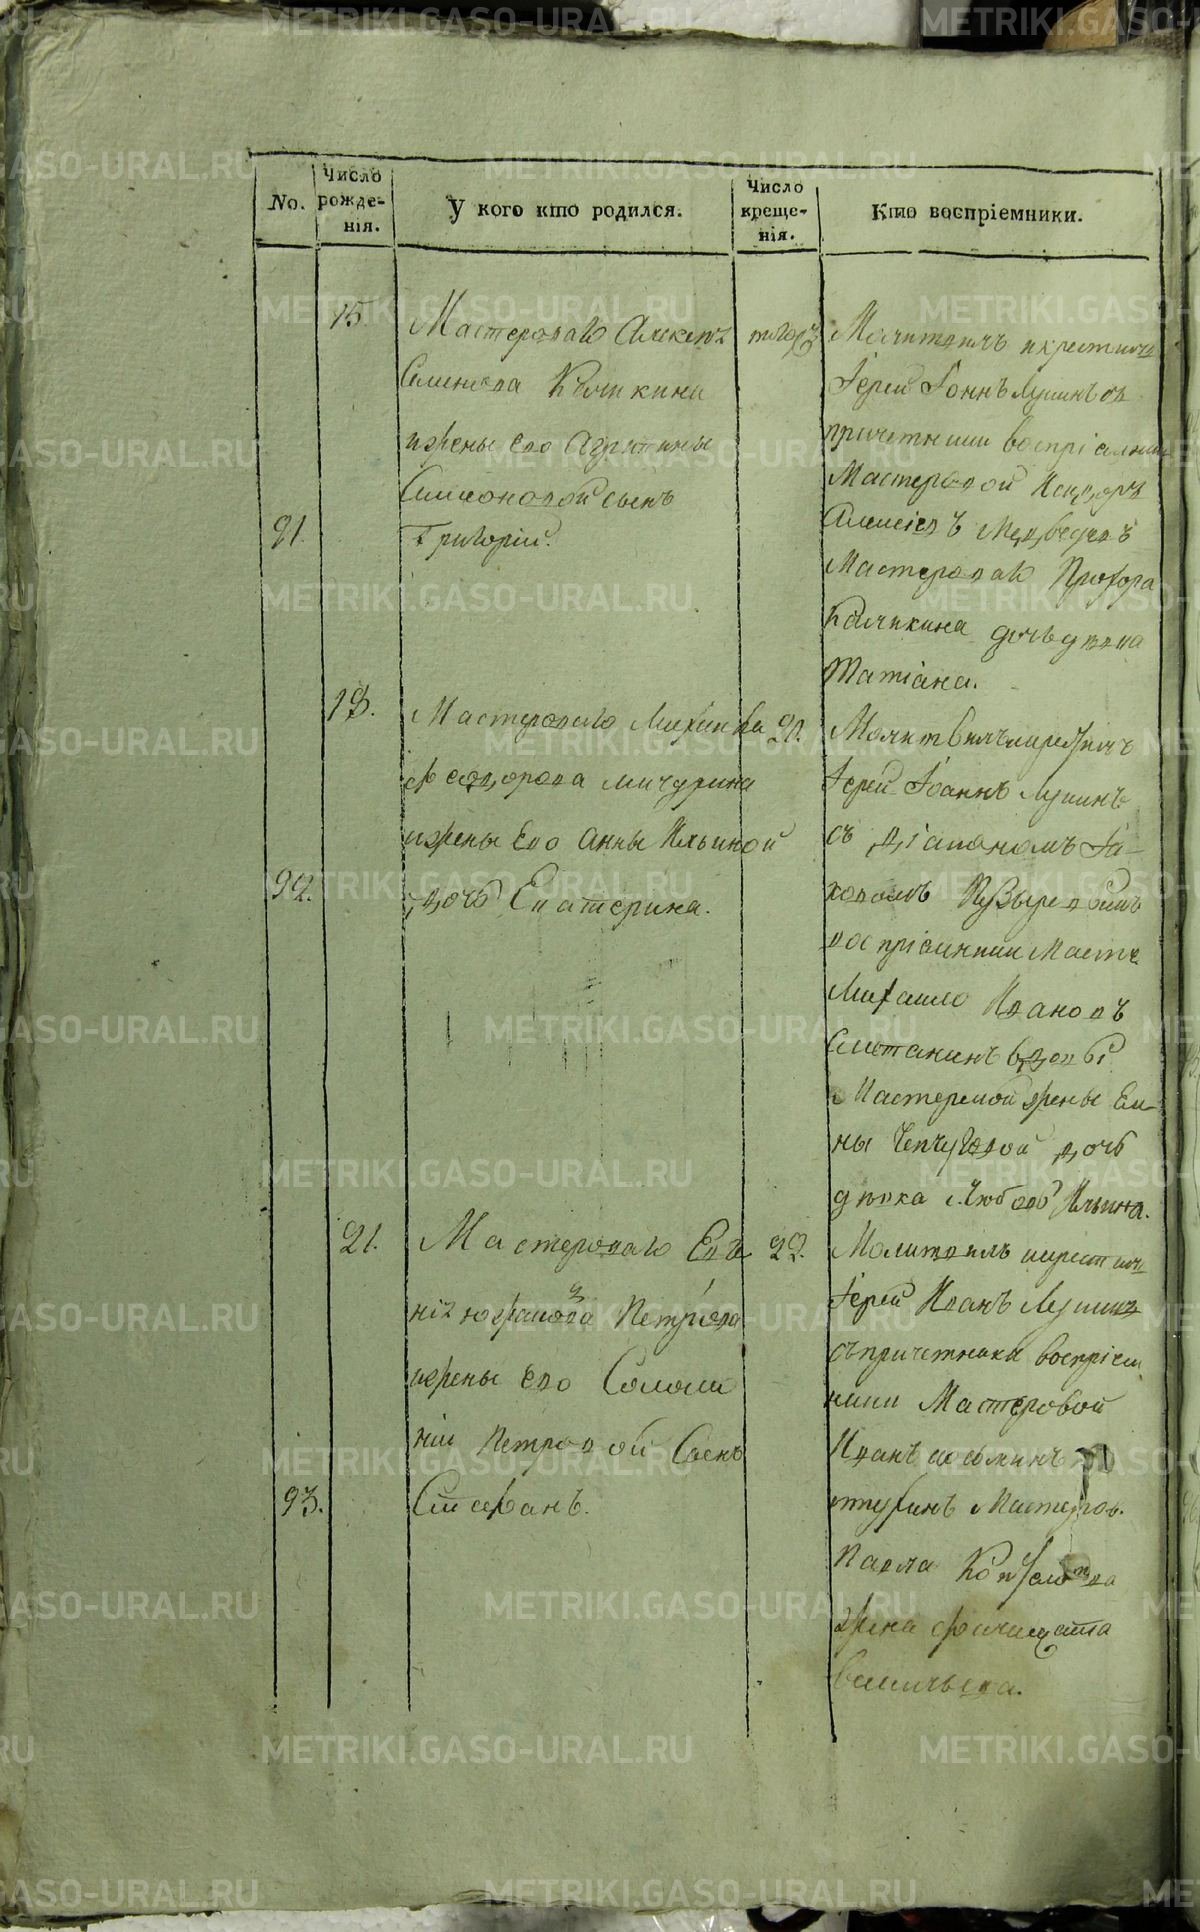 No.
Число рожде-нія.
У кого кто родился.
Число креще-нія.
Кто воспріемники.
91.
15.
Мастероваго Алексея
Семенова Каликина
и жены его Агрипины
Симеоновой сынъ
Григорій.
тогож
Молитвилъ и крестилъ
Іерей Іоннъ Лушинъ съ
причетники воспріемники
Мастеровой
Алексіевъ Медведевъ
Мастероваго Прохора
Каликина дочь девка
Татіана.
92.
19.
Мастероваго Михаила
Феодорова Мичурина
и жены Его Анны Ильиной
дочь Екатерина.
21.
Молитвилъ и крестилъ
Іерей Іоаннъ Лушинъ
съ діакономъ Іа-
ковомъ Пузыревымъ
воспріемники Масте.
Михаило Ивановъ
Сметанинъ вдовы
Мастерской жены Еле-
ны дочь
девка Любовь Ильина.
93.
21.
Мастероваго Евге
ніи Петрова
и жены его Соломо
ніи Петровой Сынъ
Стефанъ.
22.
Молитвилъ и крестилъ
Іерей Иванъ Лушинъ
съ причетники воспріем
ники Мастеровой
Иванъ
Мастеров.
Павла
жена Фимицата
Васильева.